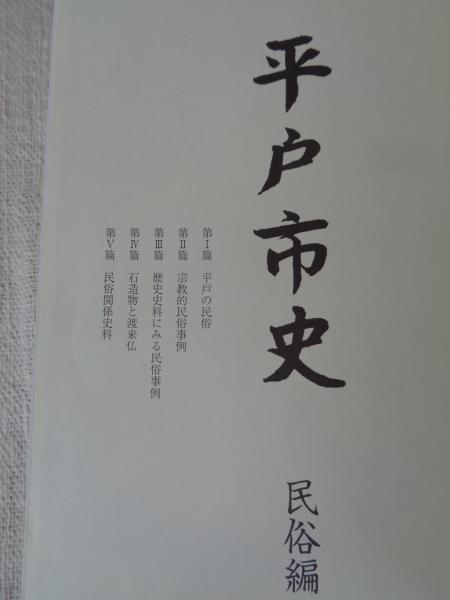 平戸市史
民俗編
第Ⅰ篇 平戸の民俗
第Ⅱ篇 宗教的民俗事例
第Ⅲ篇 歴史史料にみる民俗事例
第Ⅳ篇 石造物と渡来仏
第Ⅴ篇 民俗関係史料